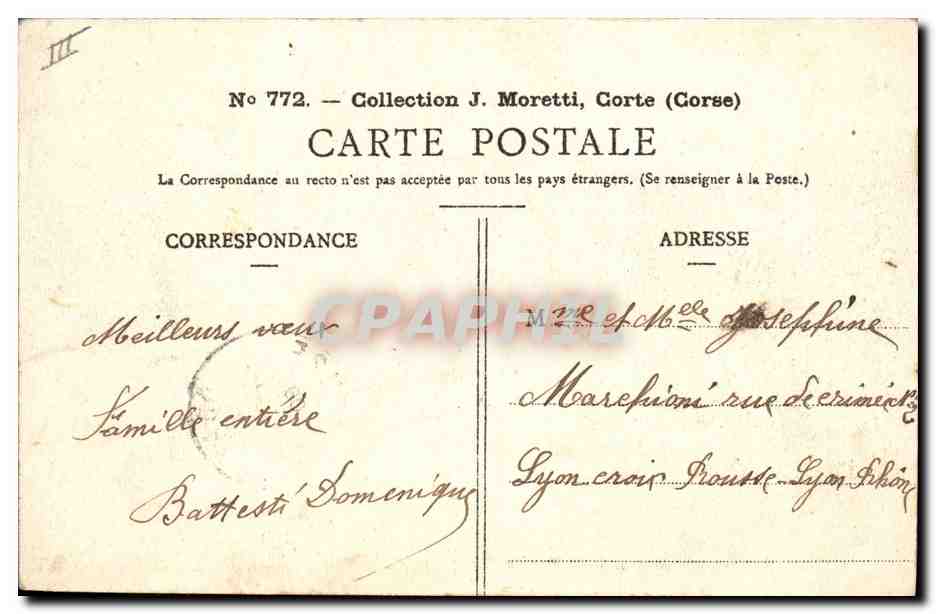 III
No 772. — Collection J. Moretti, Corte (Corse)
CARTE POSTALE
La Correspondance au recto n'est pas acceptée par tous les pays étrangers. (Se renseigner à la Poste.)
CORRESPONDANCE
Meilleurs vœux
Famille entière
Battesti Domenique
ADRESSE
Mme et Melle Josephine
Marchioni rue de crimé
Lyon croix Rousse Lyon Rhône
CPAPHIL